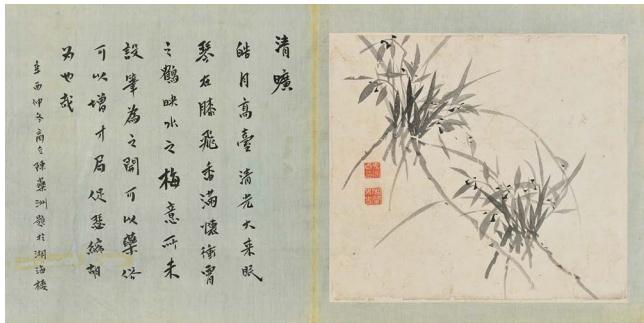 清曠
皓月高臺清光大來眠
琴在膝飛香滿懷衝霄
之鶴映水之梅意所未
設筆為之開可以藥俗
可以增才局促瑟縮胡
為也哉
辛酉仲冬商丘陳藥洲題於湖海樓